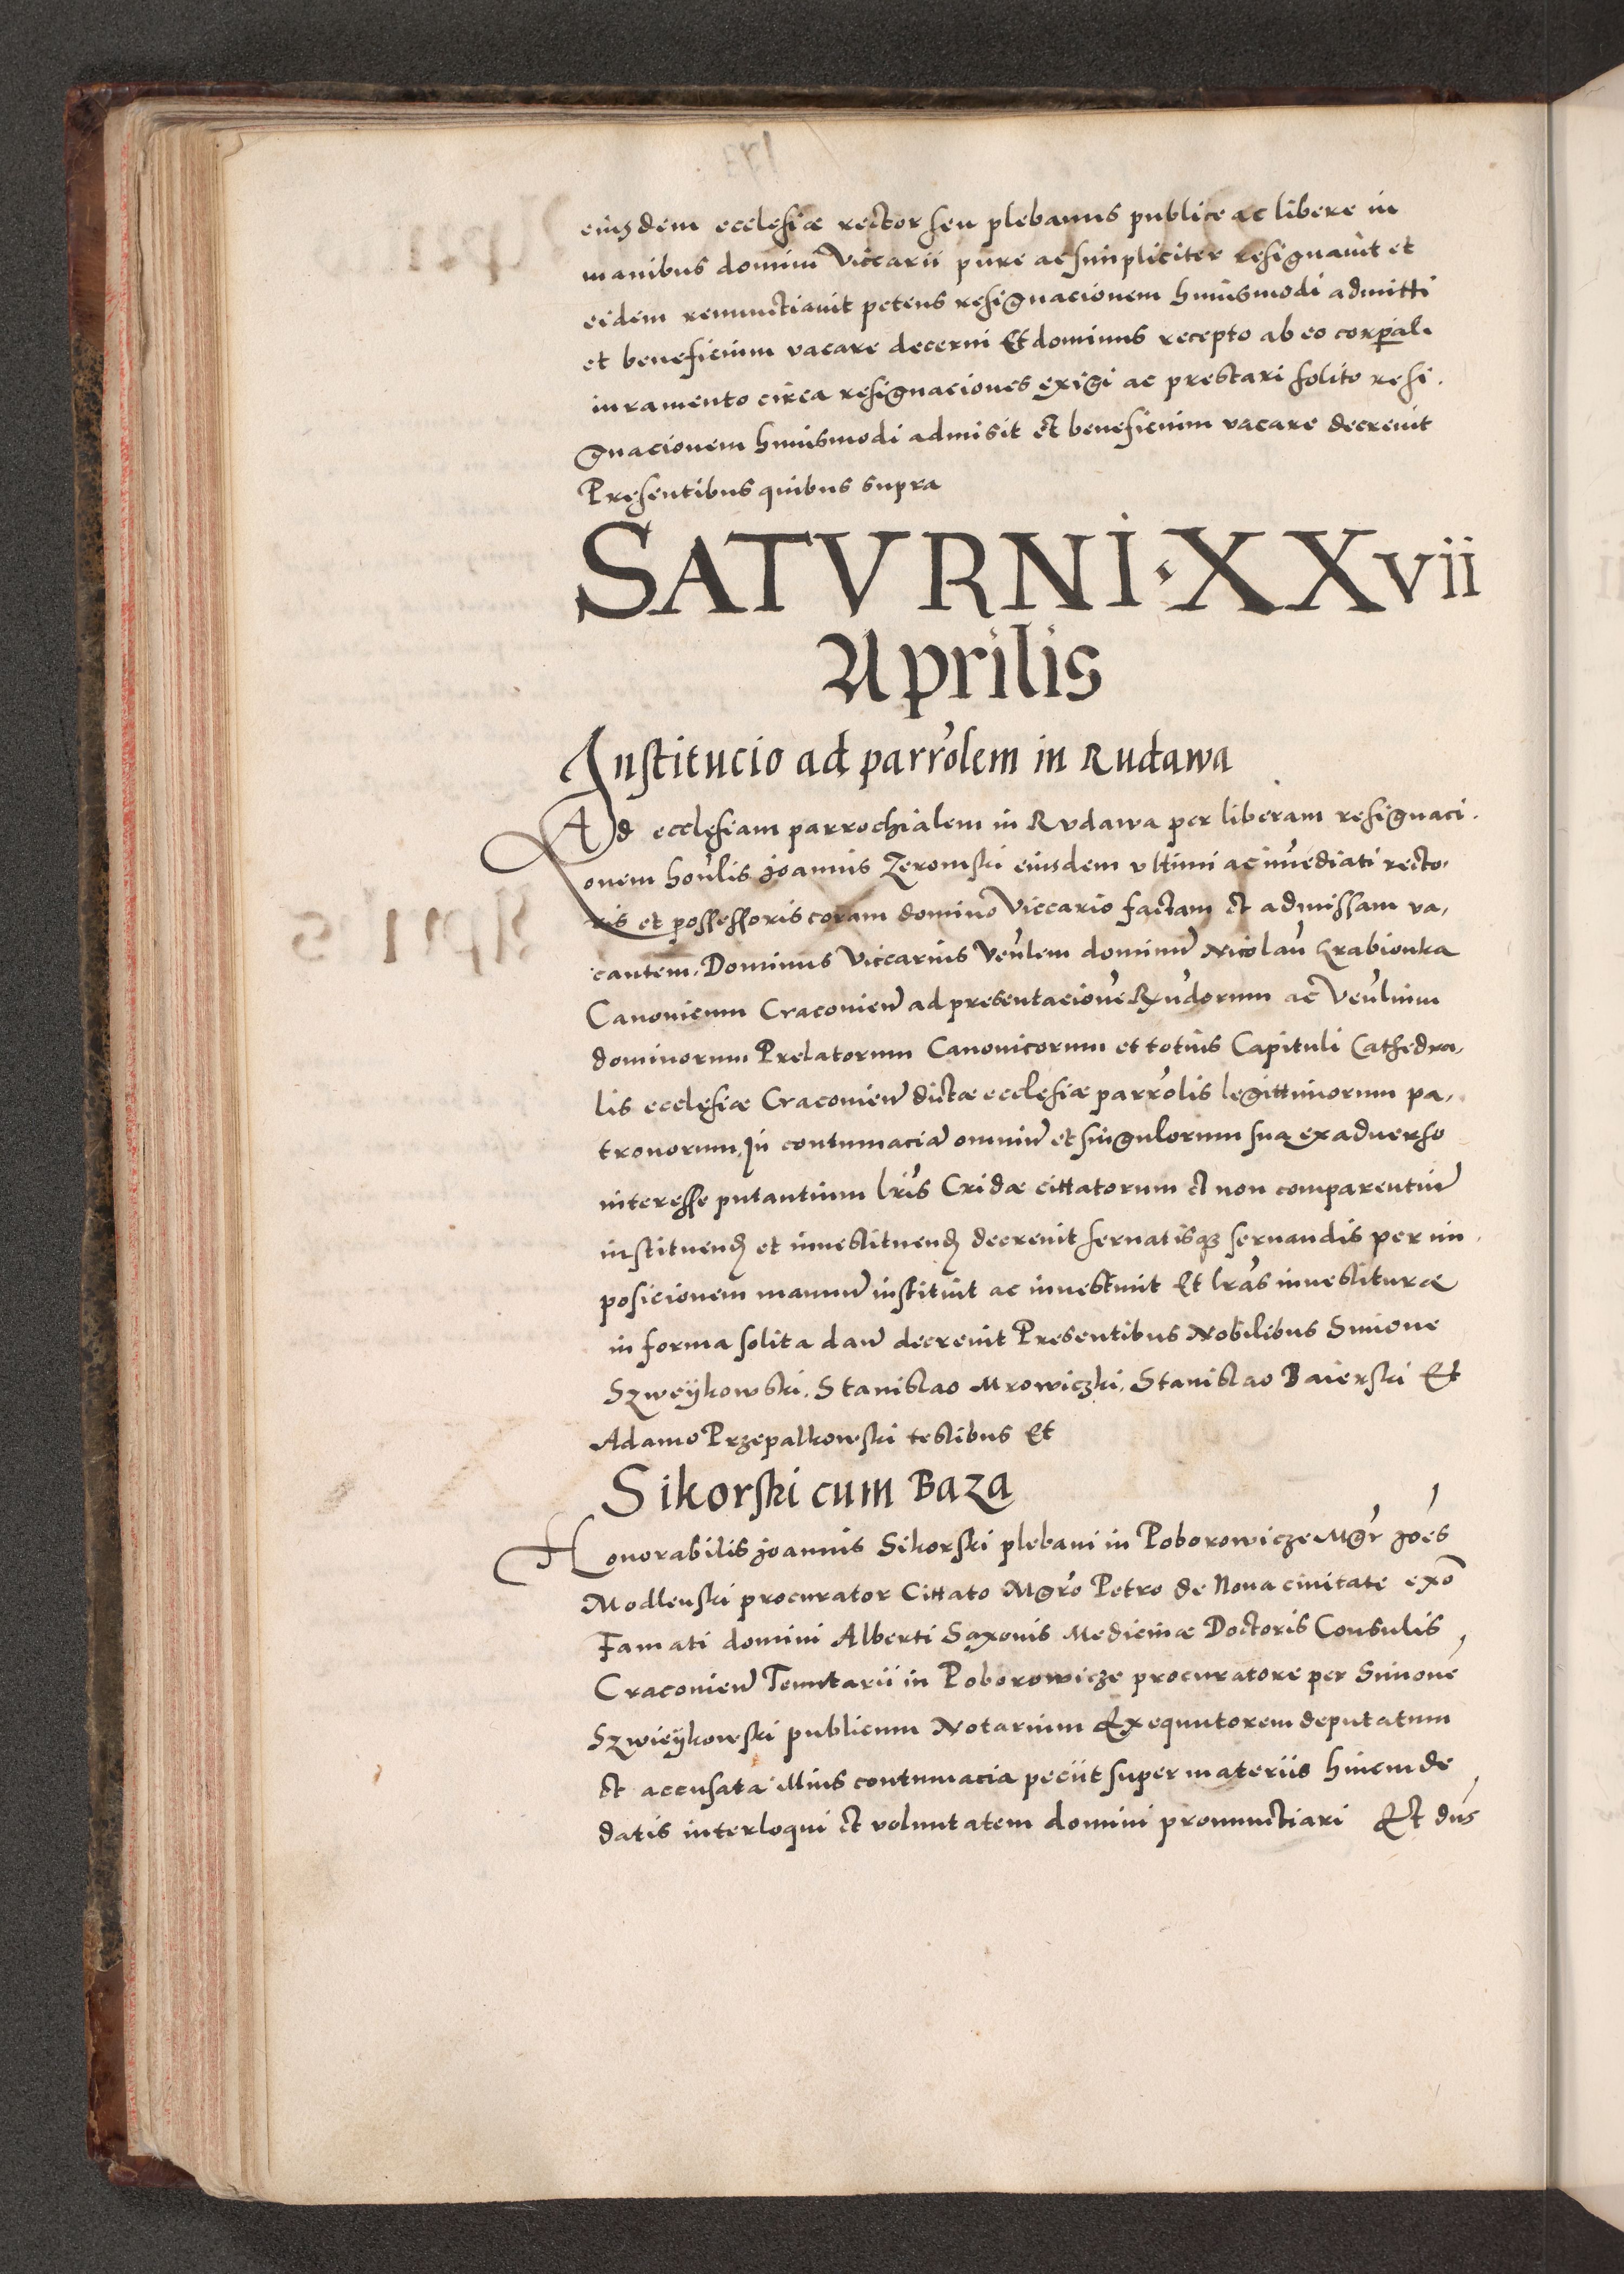 eiusdem ecclesiæ rector seu plebanus publice ac libere in
manibus domini Viccarii pure ac simpliciter resignavit et
eidem renunctiavit petens resignacionem huiusmodi admitti
et beneficium vacare decerni Et dominus recepto ab eo corpali
iuramento circa resignaciones exigi ac prestari solito resi.
gnacionem huiusmodi admisit et beneficium vacare decrevit
Presentibus quibus supra
SATVRNI · XXvii
Aprilis
Institucio ad parrolem in Rudawa
Ad ecclesiam parrochialem in Rvdawa per liberam resignaci.
onem honlis Joannis Zeromski eiusdem vltimi ac imediati recto,
ris et possessoris coram domino Viccario factam et admissam va,
cantem. Dominus Viccarius Venlem dominu Nicolau Krabionka
Canonicum Cracovien ad presentacione Rndorum ac Venlium
dominorum Prelatorum Canonicorum et totius Capituli Cathedra,
lis ecclesiæ Cracovien dictæ ecclesiæ parrolis legittimorum pa,
tronorum, In contumacia omniu et singulorum sua ex adverso
interesse putantium lris Cridæ cittatorum et non comparentiu
instituend et investituend decrevit servatisq servandis per im
posicionem manuu instituit ac investivit Et lras investituræ
in forma solita dan decrevit Presentibus Nobilibus Simone
Szweykowski. Stanislao Mrowiczki. Stanislao Baierski Et
Adamo Przepalkowski testibus Et
Sikorski cum Baza
Honorabilis Joannis Sikorski plebani in Poborowicze Mgr Joes
Modlenski procurator Cittato Mgro Petro de Nova civitate exo
Famati domini Alberti Saxonis Medicinæ Doctoris Consulis
Cracovien Tenutarii in Poborowicze procuratore per Simone
Szwieykowski publicum Notarium Exequutorem deputatum
et accusata illius contumacia peciit super materiis hincinde
datis interloqui et voluntatem domini pronunctiari Et dns